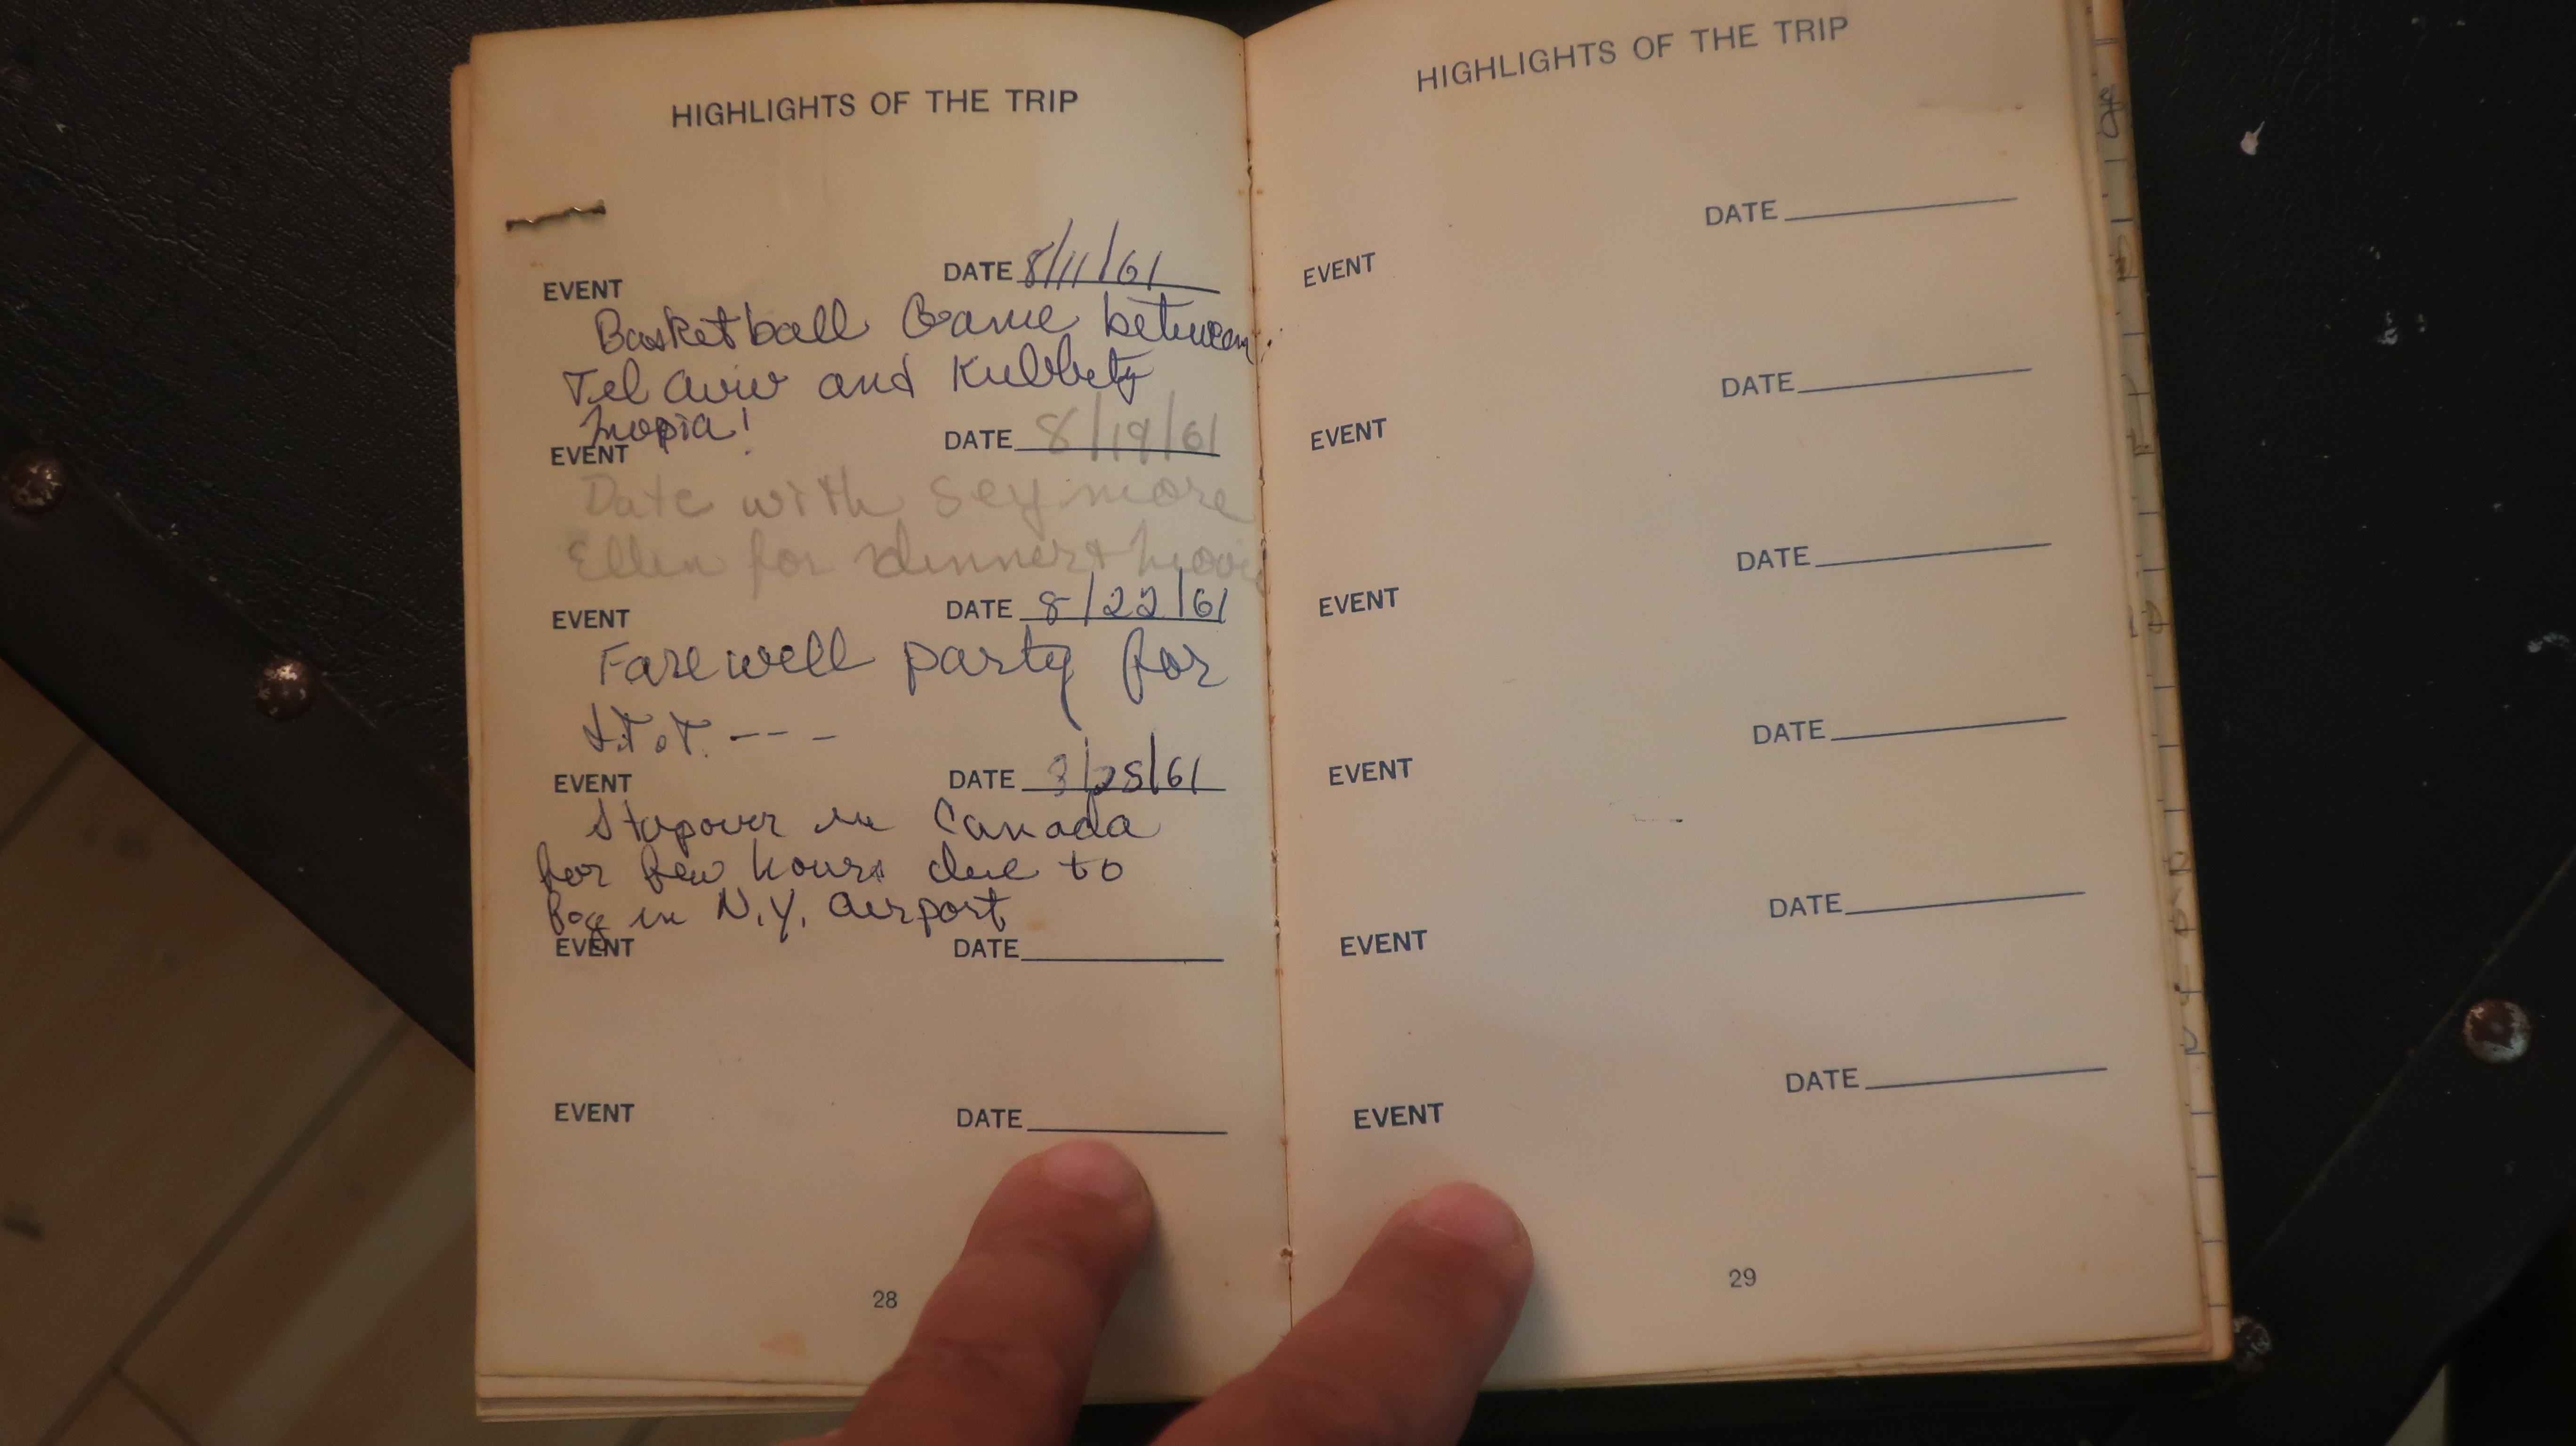 HIGHLIGHTS OF THE TRIP
EVENT DATE 8/11/61
Basketball Game between
Tel Aviv and
EVENT DATE 8/19/61
Date with Seymore
Ellen for dinner + movie
EVENT DATE 8/22/61
Farewell party for
EVENT DATE 8/25/61
Stopover in Canada
for few hours due to
Fog in N.Y. airport
EVENT DATE
EVENT DATE
28
HIGHLIGHTS OF THE TRIP
DATE
EVENT
DATE
EVENT
DATE
EVENT
DATE
EVENT
DATE
EVENT
DATE
EVENT
29